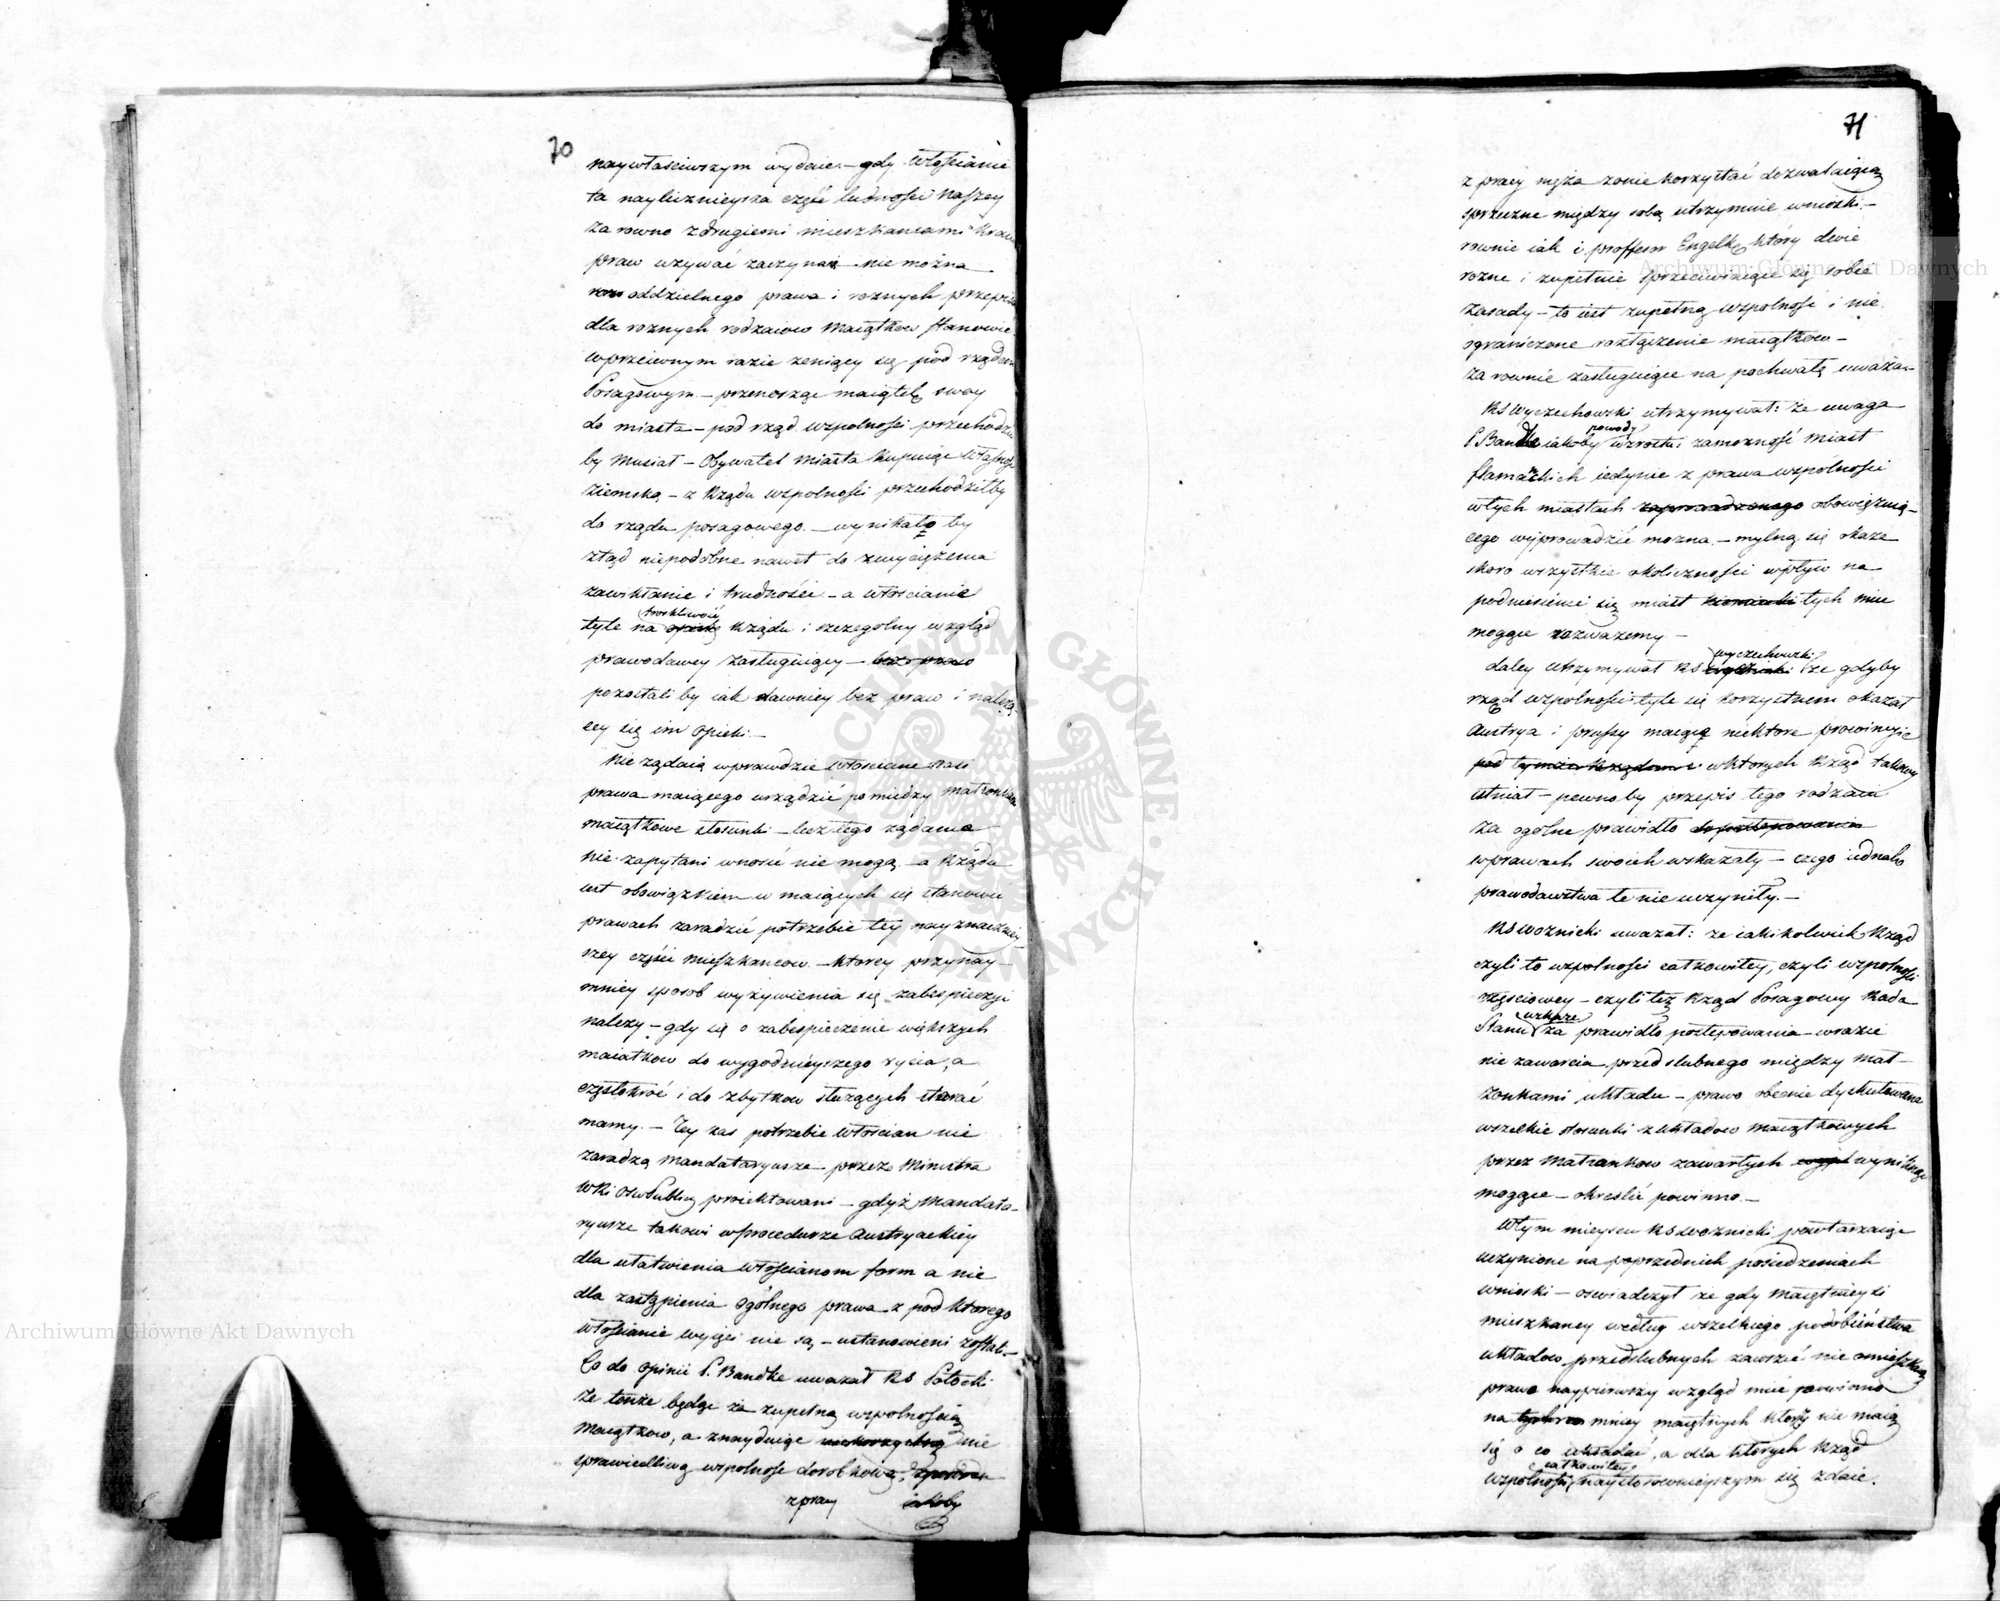 70
naywłaściwszym wydaie. – gdy Włościanie
ta naylicznieysza część ludności Naszey
za rowno z drugiemi mieszkancami Kraiu
praw uzywać zaczynaią nie można
oddzielnego prawa i roznych przepisow
dla roznych rodzaiow Maiątkow stanowić
wprzeciwnym razie zeniący się pod rządem
Posagowym – przenosząc maiątek swoy
do miasta – pod rząd wspolności przechodzić
by Musiał – Obywatel Miasta Kupuiąc Własność
Ziemską – z Rządu wspolności przechodziłby
do rządu posagowego. – wynikało by
ztąd niepodobne nawet do zwyciężenia
zawikłanie i trudności – a włościanie
troskliwość
tyle na opiekę Rządu i szczegolny wzgląd
prawodawcy zasługuiący – bez praw
pozostali by iak dawniey bez praw i należą
cey się im Opieki. –
Nie żądaią wprawdzie Włościanie
prawa maiącego urządzić pomiędzy małżonkami
maiątkowe stosunki – lecz tego ządania
nie zapytani wnosić nie mogą – a Rządu
iest obowiązkiem w maiących się stanowić
prawach zaradzić potrzebie tey nayznacznie
szey części Mieszkancow. – Ktorey przynay-
mniey sposob wyzywienia się zabespieczyć
nalezy – gdy się o zabespieczenie większych
maiatkow do wygodnieyszego zycia, a
częstokroć i do zbytkow służących starać
mamy. – Tey zas potrzebie Włościan nie
zaradzą Mandataryusze przez Ministra
proiektowani – gdyż Mandata-
ryusze takowi w procedurze Austryackiey
dla ułatwienia Włościanom form a nie
dla zastąpienia Ogólnego prawa z pod ktorego
włościanie wyięci nie są, – ustanowieni zostali –
Co do Opinii P. Bandke uwazał RS Potocki
Że tenże będąc za zupełną wspolnością
Maiątkow, a znayduiąc nie
sprawiedliwą wspolność dorobkową,
z pracy iakoby
71
z pracy męża zonie korzystać dozwalaiącą
sprzeczne między sobą utrzymuie wnioski –
rownie iak i professor Engelke który dwie
rozne i zupełnie sprzeciwiaiące się sobie
Zasady – to iest zupełną wspolność i nie
ograniczone rozłączenie maiątkow –
za rownie zasługuiące na pochwałę uważa –
RS Wyczechowski utrzymywał: że uwaga
powody
P. Bandke iakoby wzrostu i zamozność miast
flamandzkich iedynie z prawa wspólności
wtych miastach zaprowadzonego obowiązuią-
cego wyprowadzić mozna – mylną się okaze
skoro wszystkie okoliczności wpływ na
podniesienie się miast tych mieć
mogące rozwazemy –
wyczechowski
daley utrzymywał RS że gdyby
rząd wspolności tyle się korzystnem okazał
Austrya i prussy maiące niektore prowincyie
pod tymże Rządem i w ktorych Rząd takowy
istniał – pewno by przepis tego rodzaiu
Za ogólne prawidło do postępowania
wprawach swoich wskazały – czego iednak
prawodawstwa te nie uczyniły. –
RS Woznicki uwazał: ze iakikolwiek Rząd
czyli to wspolności całkowitey, czyli wspolności
częściowey – czyli też Rząd Posagowy Rada
wskaże
Stanu za prawidło postępowania – wrazie
nie zawarcia przedslubnego między mał-
żonkami układu – prawo obecnie dyskutowane
wszelkie stosunki z układow maiątkowych
przez Małżonkow zawartych wyniknąć
mogące – określić powinno. –
Wtym mieyscu RS Woznicki powtarzaiąc
uczynione na poprzednich posiedzeniach
wnioski – oswiadczył ze gdy Maiętnieysi
mieszkancy według wszelkiego podobieństwa
układow przedślubnych zawrzeć nie omieszkaią
prawo naypierwszy wzgląd mieć powinno
na mniey maiętnych ktorzy nie maią
się o co układać, a dla ktorych Rząd
całkowitey
wspolności naystosownieyszym się zdaie.
Archiwum Główne Akt Dawnych
Archiwum Główne Akt Dawnych
ARCHIWUM GŁÓWNE AKT DAWNYCH